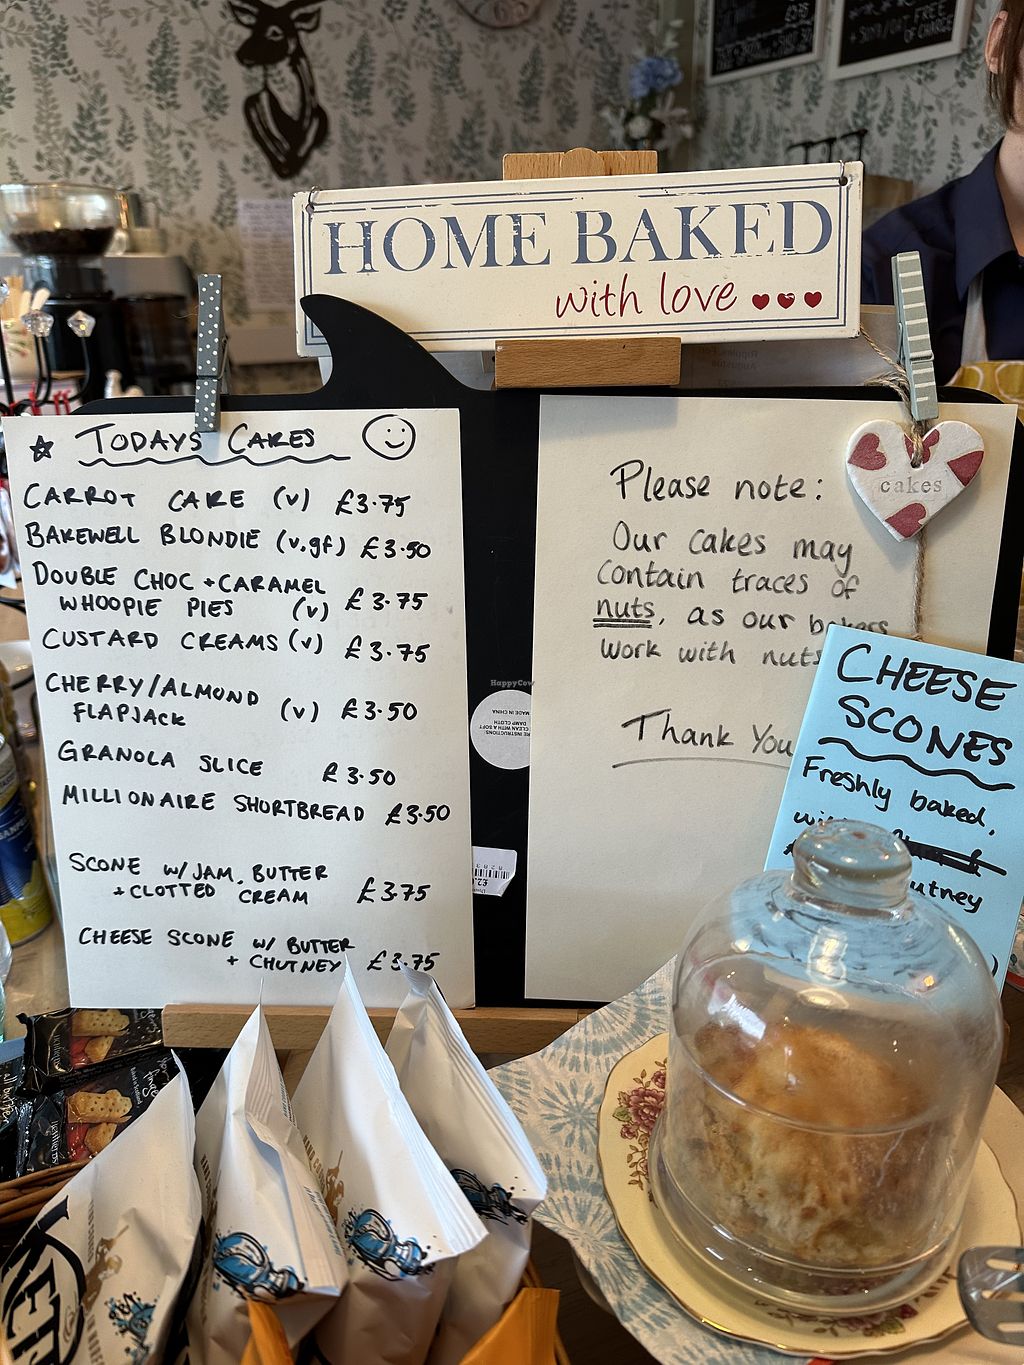 + SOYA/OAT FREE
OF CHARGE
HOME BAKED
with love
TODAYS CAKES
CARROT CAKE (v) £3.75
BAKEWELL BLONDIE (v,gf) £3.50
DOUBLE CHOC + CARAMEL
WHOOPIE PIES (v) £3.75
CUSTARD CREAMS (v) £3.75
CHERRY/ALMOND
FLAPJACK (v) £3.50
GRANOLA SLICE £3.50
MILLIONAIRE SHORTBREAD £3.50
SCONE W/ JAM, BUTTER
+ CLOTTED CREAM £3.75
CHEESE SCONE W/ BUTTER
+ CHUTNEY £3.75
Please note:
Our cakes may
contain traces of
nuts, as our bakers
work with nuts
Thank You
cakes
CHEESE
SCONES
Freshly baked,
HappyCow
CLEAN WITH A SOFT
DAMP CLOTH
MADE IN CHINA